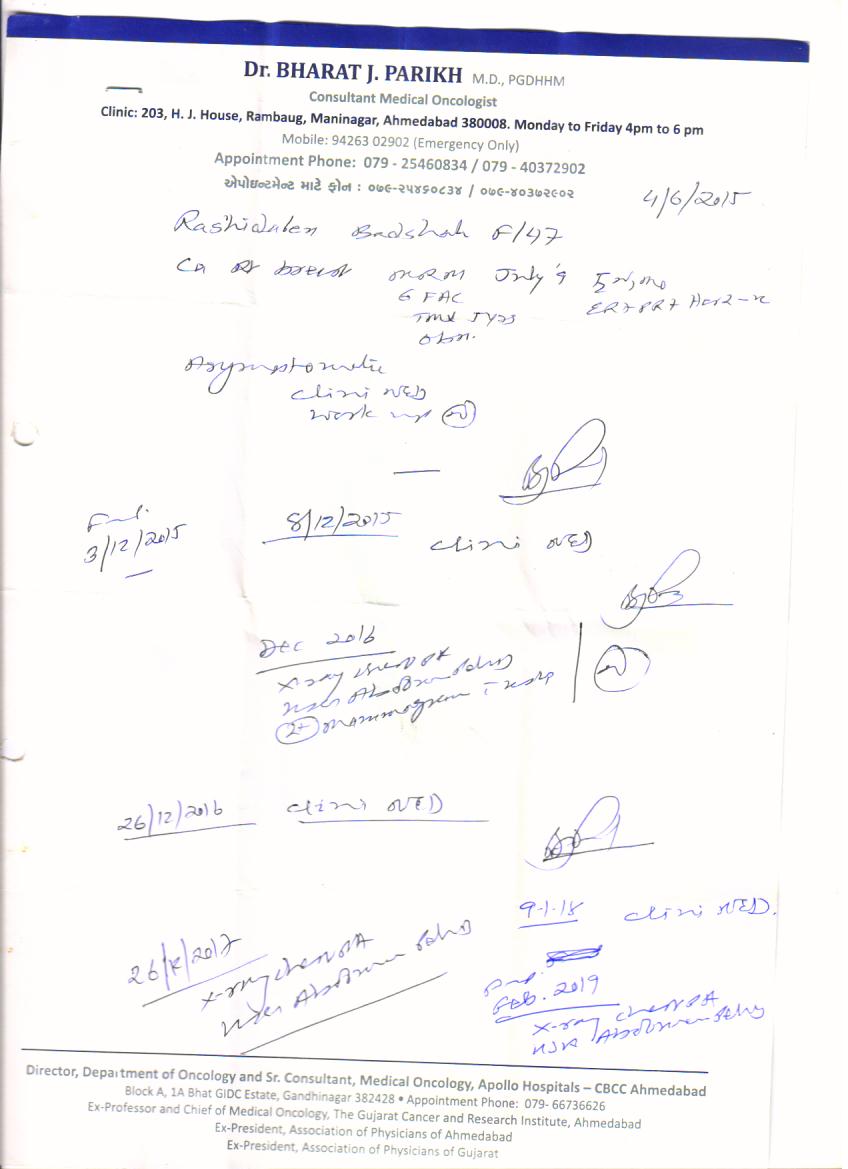 Dr. BHARAT J. PARIKH M.D., PGDHHM
Consultant Medical Oncologist
Clinic: 203, H. J. House, Rambaug, Maninagar, Ahmedabad 380008. Monday to Friday 4pm to 6 pm
Mobile: 94263 02902 (Emergency Only)
Appointment Phone: 079 - 25460834 / 079 - 40372902
એપોઇન્ટમેન્ટ માટે ફોન : ૦૭૯-૨૫૪૬૦૮૩૪ / ૦૭૯-૪૦૩૭૨૯૦૨
4/6/2015
Badshah F/47
Ca Rt breast MRM July'9
6 FAC ER+ PR+ Her2-
Asymptomatic
Clini NED
Work up
3/12/2015
8/12/2015 Clini NED
Dec 2016
X-ray chest PA
Abdomen Pelvis
Mammogram
26/12/2016 Clini NED
9-1-18 Clini NED.
2017
X-ray chest PA
Abdomen Pelvis
Feb. 2019
X-ray chest PA
Abdomen Pelvis
Director, Department of Oncology and Sr. Consultant, Medical Oncology, Apollo Hospitals – CBCC Ahmedabad
Block A, 1A Bhat GIDC Estate, Gandhinagar 382428 • Appointment Phone: 079- 66736626
Ex-Professor and Chief of Medical Oncology, The Gujarat Cancer and Research Institute, Ahmedabad
Ex-President, Association of Physicians of Ahmedabad
Ex-President, Association of Physicians of Gujarat